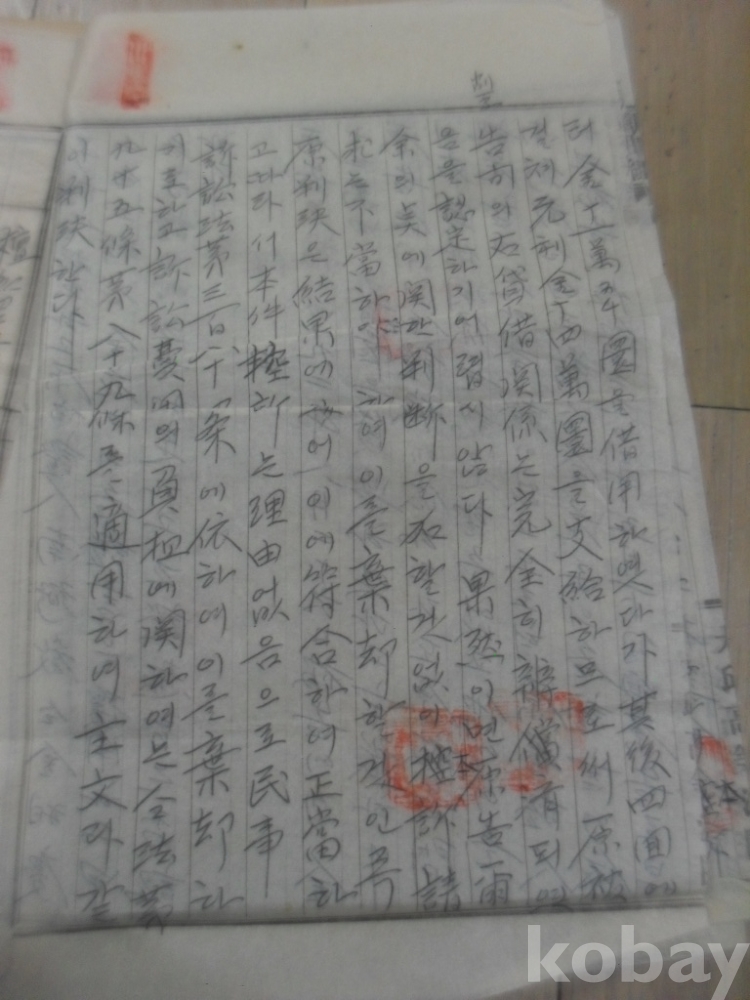 터 金十一萬五千圜을 借用하엿다가 其後 四回에
걸처 元利金 十四萬圜을 支給하므로써 原被
告間의 右貸借関係는 完全히 辨償消되엿
음을 認定하기 어렵지 않다 果然이면 原告 爾
余의 点에 関한 判断을 할것없이 控訴請
求는 不當하 여 이를 棄却할것인즉
原判決은 結果에 있어 이에 符合하여 正當하
고 따라서 本件 控訴는 理由없음으로 民事
訴訟法 第三百八十 条에 依하여 이를 棄却하
기로하고 訴訟費用의 負担에 関하여는 仝法第
九十五條 第八十九條를 適用하여 主文과 같
이 判決한다
kobay